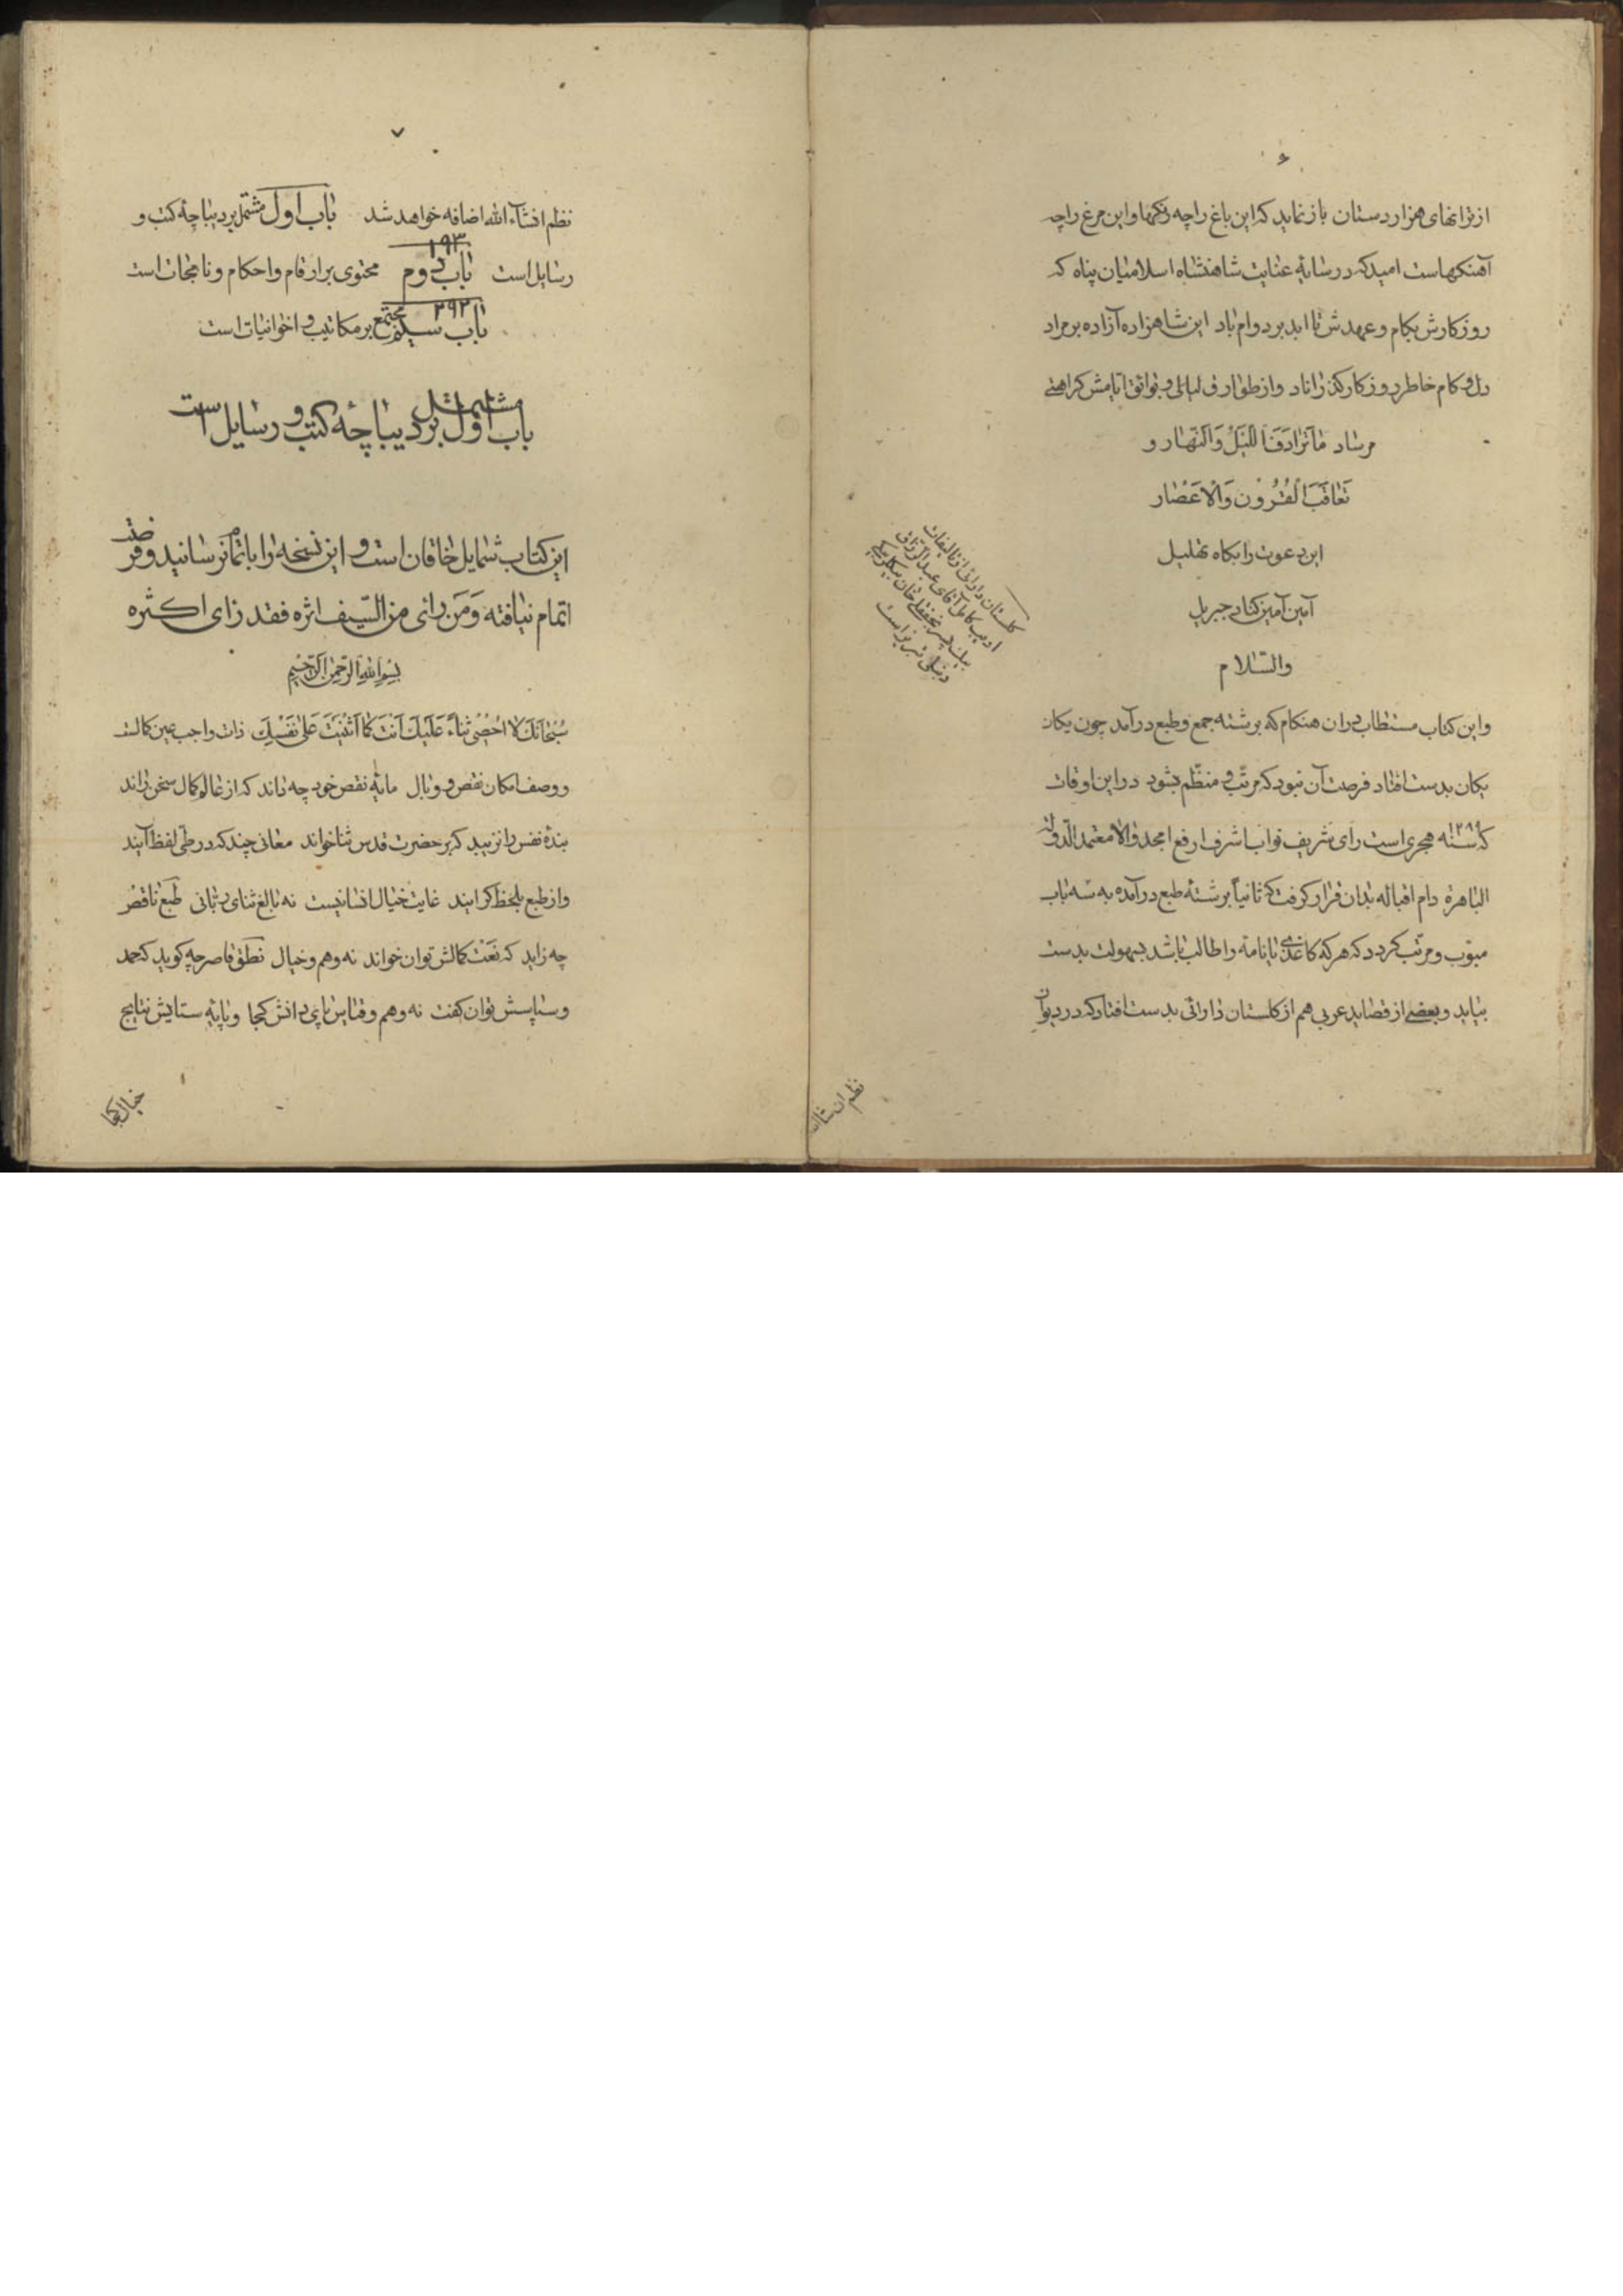 ۶
از ترانهای هزار دستان باز نماید که این باغ را چه رنکها و این مرغ را چه
آهنکهاست امید که در سایهٔ عنایت شاهنشاه اسلامیان پناه که
روزکارش بکام و عهدش تا ابد بر دوام باد این شاهزاده آزاده بر مراد
دل و کام خاطر روزکار کذراناد و از طوارق لیالی و بوائق ایامش کراهتی
مرساد ماترادف اللَّیلُ وَالنَّهار و
تَعاقَبَ القُرُوْن وَالاَعَصْار
این دعوت را بکاه تهلیل
آمین آمین کناد جبریل
والسّلام
و این کتاب مستطاب در ان هنکام که برشته جمع و طبع در آمد چون یکان
یکان بدست افتاد فرصت آن نبود که مرتّب و منظّم بشود در این اوقات
که سنه ۱۲۸۹ هجری است رای شریف نواب اشرف ارفع امجد والا معتمد الدّولة
الباهرة دام اقباله بدان قرار کرفت که ثانیاً برشتهٔ طبع در آمده به سه باب
مبوّب و مرتّب کردد که هر که کاغذی یا نامهٔ را طالب باشد بسهولت بدست
بیاید و بعضی از قصاید عربی هم از کلستان دارائی بدست افتاد که در دیوان
کلستان دارائی از تألیفات
ادیب کامل آقای عبدالرزاق
بیک پسر نجفقلی خان بیکلربیکی
دنبلی تبریز است
نظم ان شاالله
۷
نظم انشآء الله اضافه خواهد شد باب اول مشتمل بر دیباچهٔ کتب و
رسایل است باب دوم ۱۹۳ محتوی بر ارقام و احکام و نامجات است
باب سیّم ۲۹۲ مجتمع بر مکاتیب و اخوانیات است
باب اول مشتمل بر دیباچهٔ کتب و رسایل است
این کتاب شمایل خاقان است و این نسخه را باتمام نرسانید و فرصت
اتمام نیافته وَمَن رای من السّیف اثره فقد رای اکثره
بسم الله الرّحمن الرّحیم
سُبْحانَکَ لا اُحْصْی ثناءً عَلَیْکَ اَنْتَ کَما اَثْنَیْتَ عَلیٰ نَفْسِکَ ذات واجب عین کمالست
و وصف امکان نقص و وبال مایهٔ نقص خود چه داند که از عالم کمال سخن راند
بندهٔ نفس را نزیبد که بر حضرت قدس ثنا خواند معانی چند که در طی لفظ آیند
و از طبع بلحظ کرایند غایت خیال انسانیست نه بالغ ثنای ربّانی طبع ناقص
چه زاید که نَعْت کمالش توان خواند نه وهم و خیال نطق قاصر چه کوید که حمد
و سپاسش توان کفت نه وهم و قیاس پای دانش کجا و پایهٔ ستایش نتایج
خیال کجا